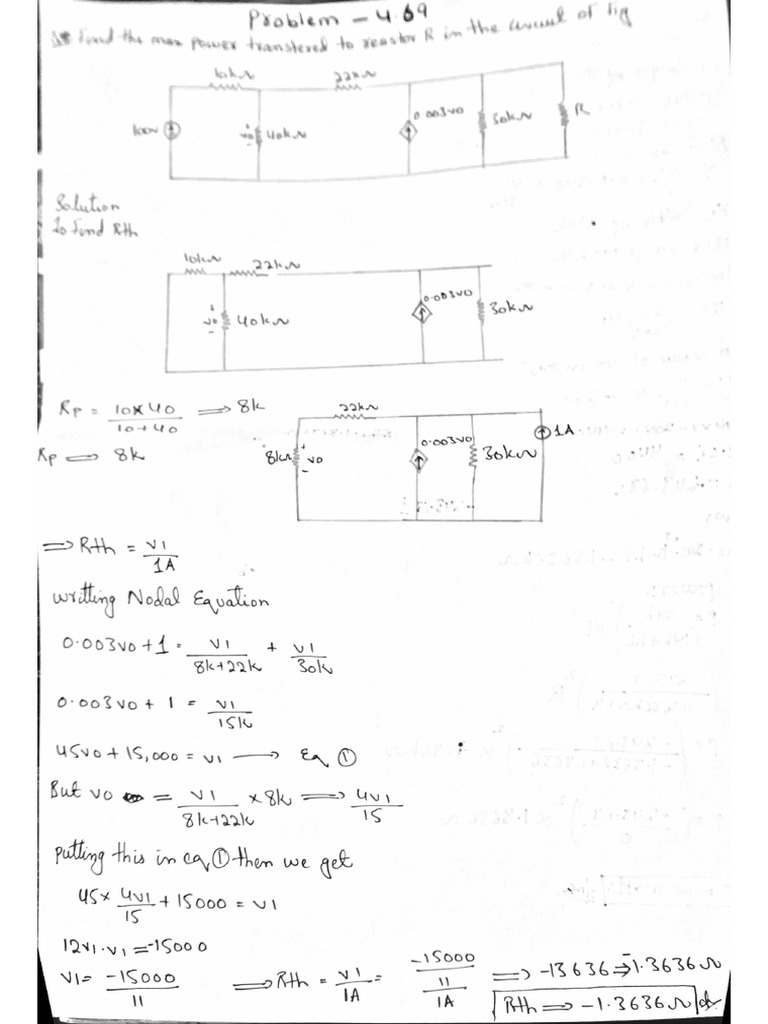 Problem - 4.69
Find the max power transfered to resistor R in the circuit of fig
10kΩ
22kΩ
100v
+
vo
-
40kΩ
0.003vo
30kΩ
R
Solution
To find Rth
10kΩ
22kΩ
+
vo
-
40kΩ
0.003vo
30kΩ
Rp = 10×40 / 10+40 ⇒ 8k
Rp ⇒ 8k
22kΩ
8kΩ
+
vo
-
0.003vo
30kΩ
1A
⇒ Rth = v1 / 1A
writting Nodal Equation
0.003vo + 1 = v1 / 8k+22k + v1 / 30k
0.003vo + 1 = v1 / 15k
45vo + 15,000 = v1 → Eq ①
But vo = v1 / 8k+22k × 8k ⇒ 4v1 / 15
putting this in eq ① then we get
45× 4v1 / 15 + 15000 = v1
12v1 - v1 = -15000
v1 = -15000 / 11 ⇒ Rth = v1 / 1A = -15000 / 11 / 1A ⇒ -13636 ⇒ -1.3636Ω
Rth ⇒ -1.3636Ω